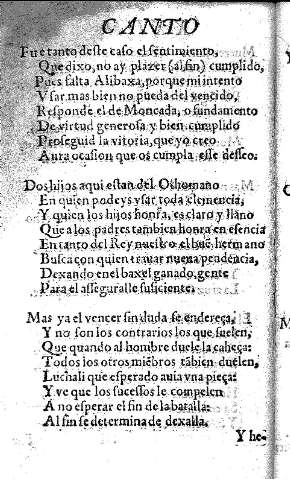 CANTO
Fue tanto deste caso el sentimiento,
Que dixo, no ay plazer (al fin) cumplido,
Pues falta Alibaxa, porque mi intento
Vsar mas bien no pueda del vencido,
Responde el de Moncada, o fundamento
De virtud generosa y bien cumplido
Proseguid la vitoria, que yo creo
Aura ocasion que os cumpla esse desseo.
Dos hijos aqui estan del Othomano
En quien podeys vsar toda clemencia,
Y quien los hijos honra, es claro y llano
Que a los padres tambien honra en esencia
En tanto del Rey nuestro el buē hermano
Busca con quien trauar nueua pendencia,
Dexando en el baxel ganado, gente
Para el asseguralle suficiente.
Mas ya el vencer sin duda se endereça,
Y no son los contrarios los que suelen,
Que quando al hombre duele la cabeça:
Todos los otros miēbros tābien duelen,
Luchali que esperado auia vna pieça:
Y ve que los sucessos le compelen
A no esperar el fin de la batalla:
Al fin se determina de dexalla.
Y he-